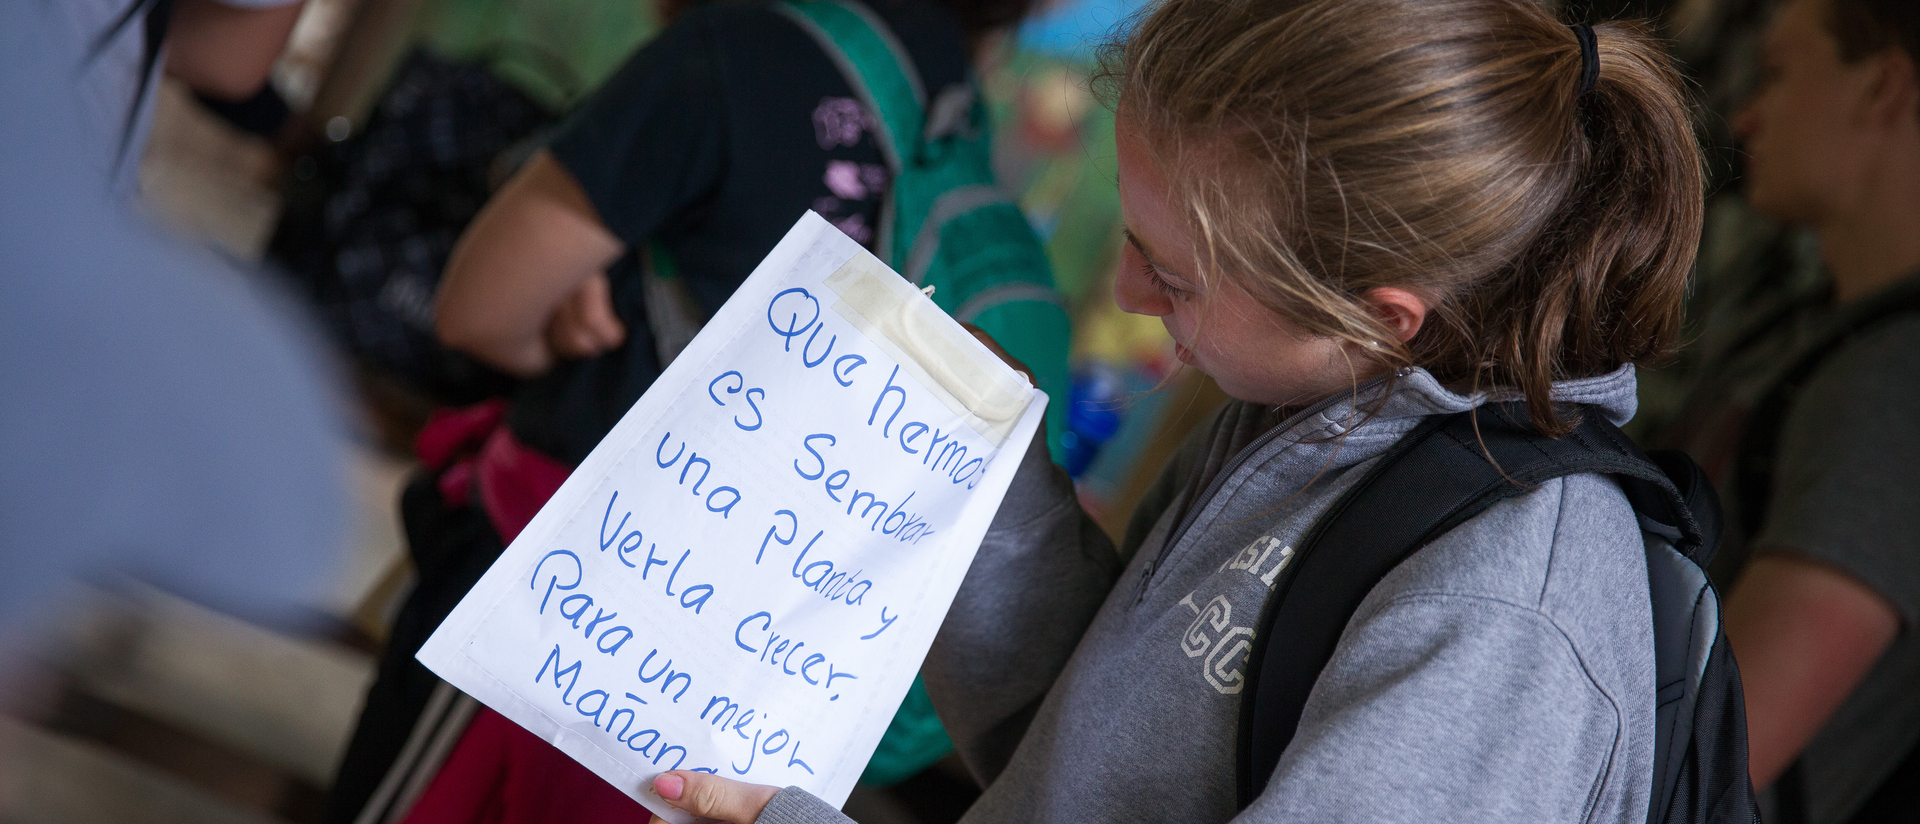 Que hermoso
es Sembrar
una Planta y
Verla Crecer,
Para un mejor
Mañana